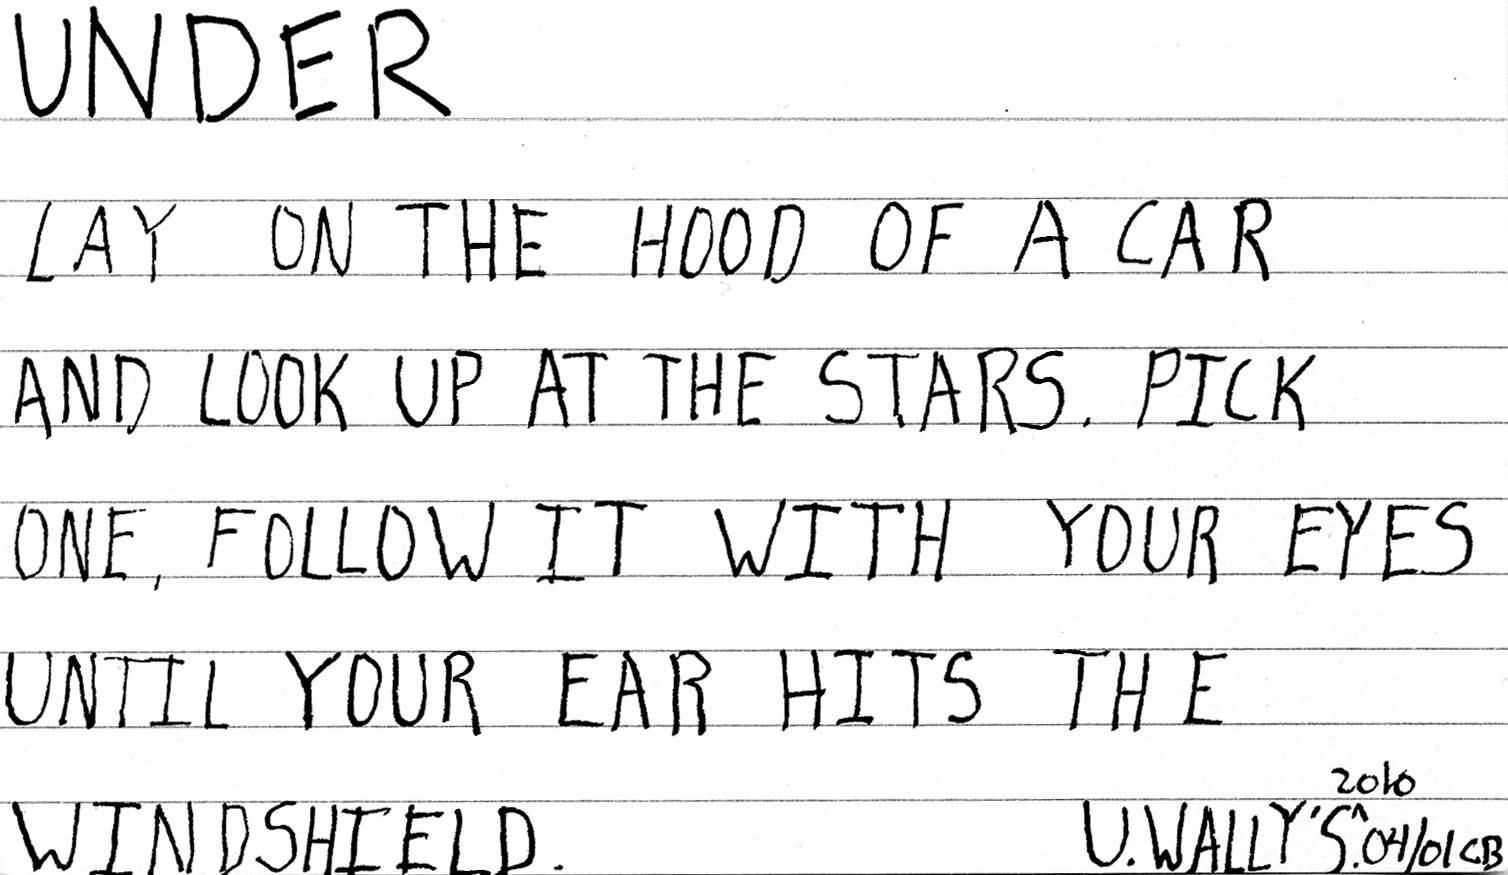 UNDER
LAY ON THE HOOD OF A CAR
AND LOOK UP AT THE STARS. PICK
ONE, FOLLOW IT WITH YOUR EYES
UNTIL YOUR EAR HITS THE
WINDSHIELD.
2010
U. WALLY'S.^04/01 CB